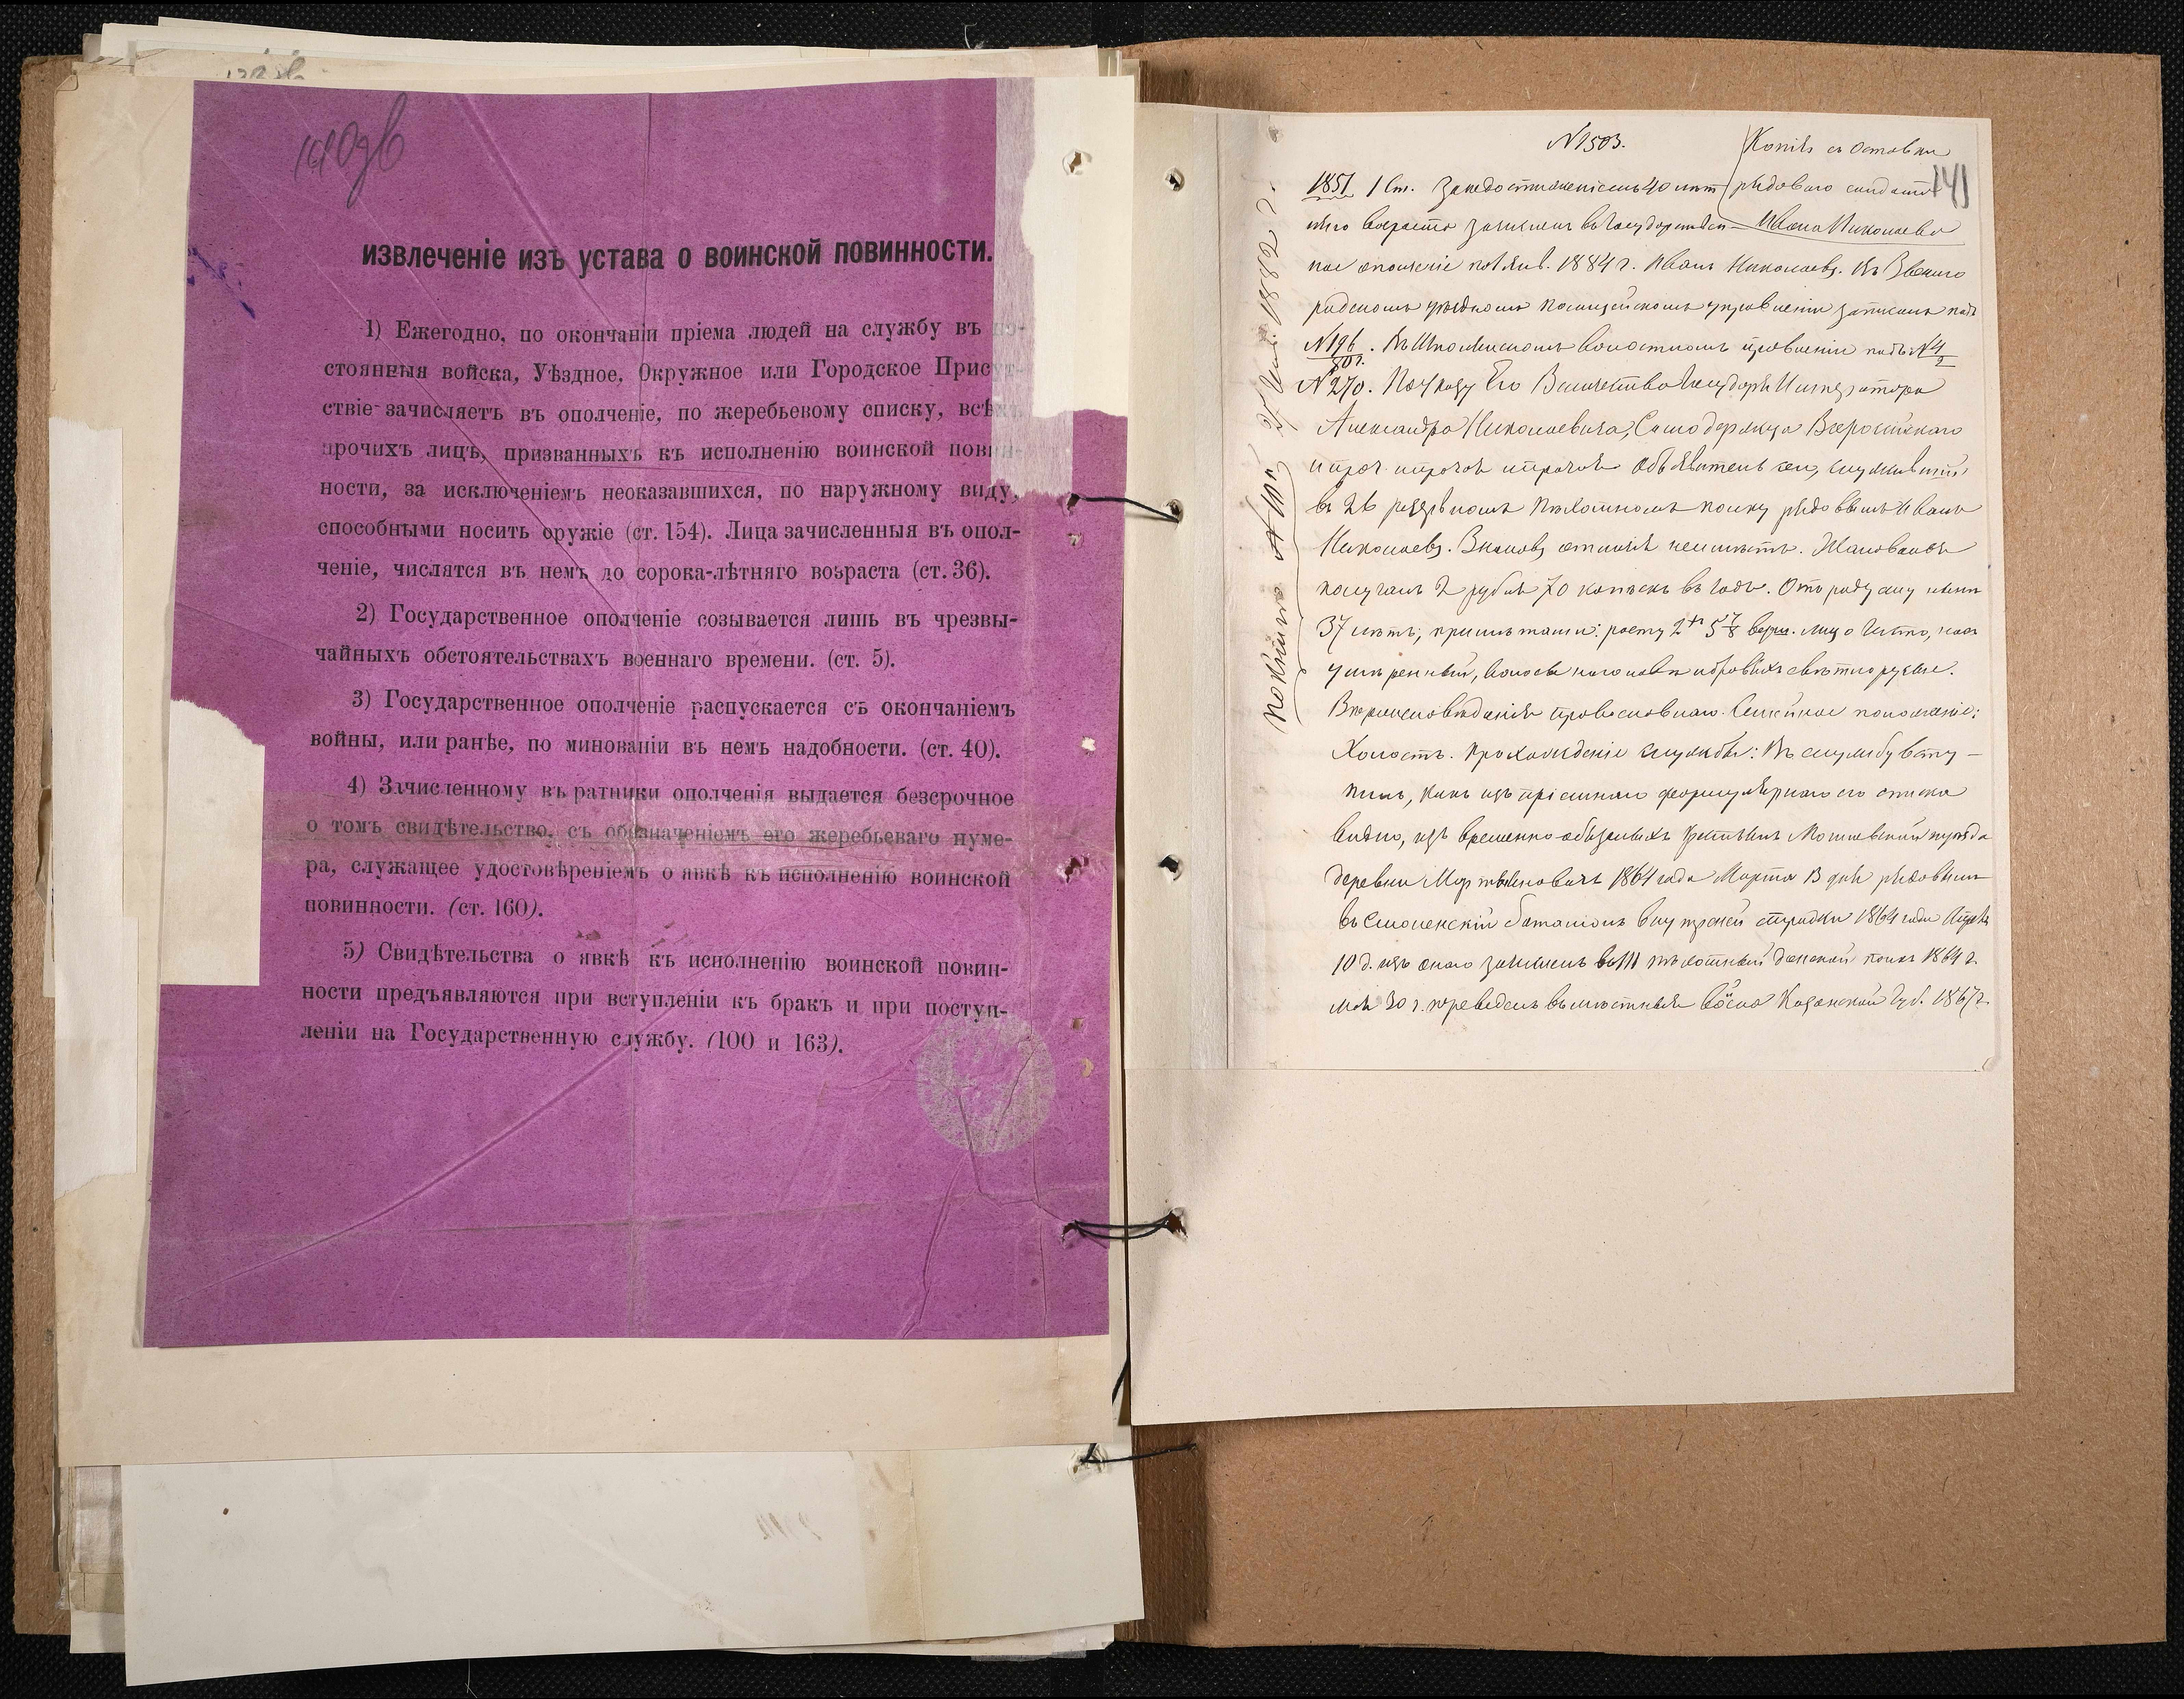 140об
извлеченіе изъ устава о воинской повинности.
1) Ежегодно, по окончаніи пріема людей на службу въ по-
стоянныя войска, Уѣздное, Окружное или Городское Присут-
ствіе зачисляетъ въ ополченіе, по жеребьевому списку, всѣхъ
прочихъ лицъ, призванныхъ къ исполненію воинской повин-
ности, за исключеніемъ неоказавшихся, по наружному виду,
способными носить оружіе (ст. 154). Лица зачисленныя въ опол-
ченіе, числятся въ немъ до сорока-лѣтняго возраста (ст. 36).
2) Государственное ополченіе созывается лишь въ чрезвы-
чайныхъ обстоятельствахъ военнаго времени. (ст. 5).
3) Государственное ополченіе распускается съ окончаніемъ
войны, или ранѣе, по минованіи въ немъ надобности. (ст. 40).
4) Зачисленному въ ратники ополченія выдается безсрочное
о томъ свидѣтельство, съ обозначеніемъ его жеребьеваго нуме-
ра, служащее удостовѣреніемъ о явкѣ къ исполненію воинской
повинности. (ст. 160).
5) Свидѣтельства о явкѣ къ исполненію воинской повин-
ности предъявляются при вступленіи къ бракъ и при поступ-
леніи на Государственную службу. (100 и 163).
№ 1503.
Копія съ отставки
141
1851 1 Ст. За недостиженіемъ 40 лѣт
рядоваго солдата
няго возраста зачисленъ въ Государствен-
Ивана Николаева
ное ополченіе по 1 Янв. 1884 г. Иванъ Николаевъ. Въ Звениго
родскомъ уѣздномъ полицейскомъ управленіи записанъ подъ
№ 196. Въ волостномъ правленіи подъ № 4
80 г.
№ 270. По указу Его Величества Государя Императора
Александра Николаевича, Самодержца Всероссійскаго
и проч. и прочая и прочая Объявитель сего, служившій
въ 26 резервномъ Пѣхотномъ полку рядовымъ Иванъ
Николаевъ. Знаковъ отличія неимѣетъ. Жалованья
получалъ 2 рубля 70 копѣекъ въ годъ. Отъ роду ему нынѣ
37 лѣтъ, примѣтами: росту 2 5 7/8 верш. лицо чисто, носъ
умѣренный, волосы на головѣ и бровяхъ свѣтлорусые.
Вѣроисповѣданія православнаго. Семейное положеніе:
Холостъ. Прохожденіе службы: Въ службу всту-
пилъ, какъ изъ пріемнаго формулярнаго его списка
видно, изъ временно-обязанныхъ крестьянъ уѣзда
деревни 1864 года Марта 13 дня рядовымъ
въ Смоленскій баталіонъ внутреней стражи 1864 года Апрѣля
10 д. изъ онаго зачисленъ въ пѣхотный полкъ 1864 г.
Мая 30 ч. переведенъ въ мѣстныя войска Казанской Губ. 1867 г.